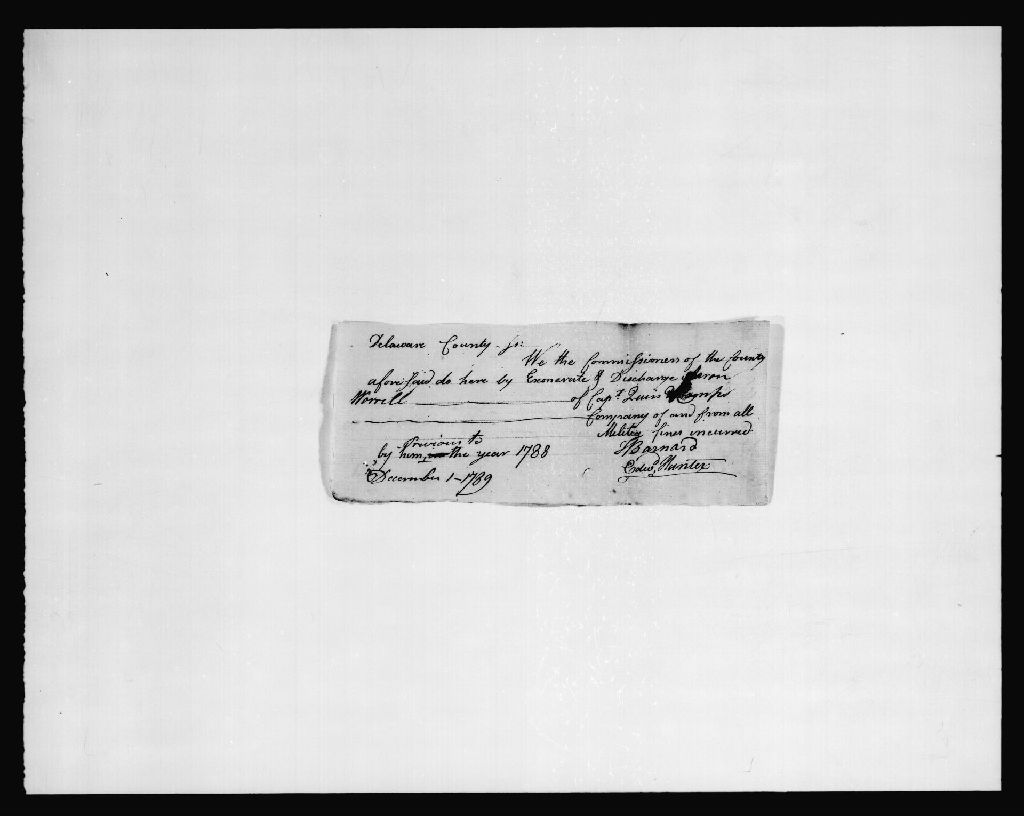 Delaware County Ss:
We the Commissioners of the County
afore said do here by Exonerate & Discharge Aaron
Worrell of Capt.
Company of and from all
Military fines incurred
previous to
by him the year 1788
December 1 - 1789
J Barnard
Edwd. Hunter